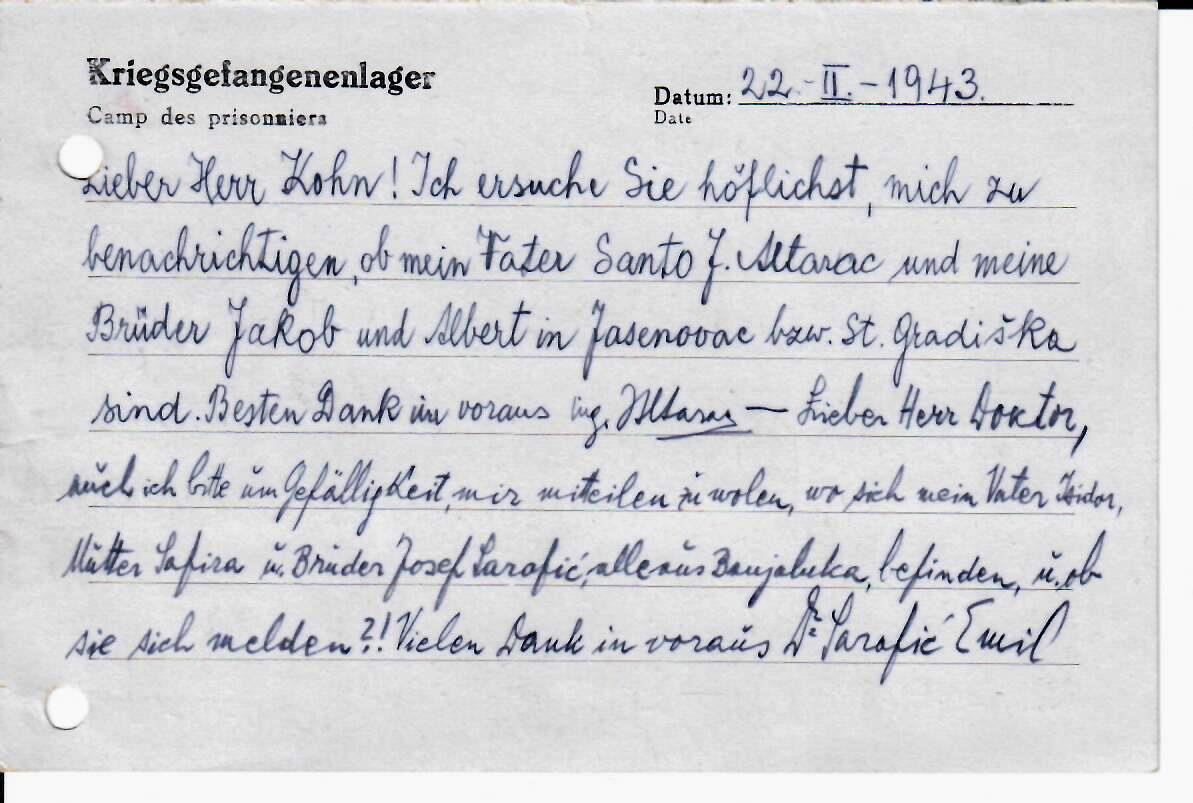 Kriegsgefangenenlager
Camp des prisonniers
Datum: 22.-II.-1943.
Date
Lieber Herr Kohn! Ich ersuche Sie höflichst, mich zu
benachrichtigen, ob mein Vater Santo J. Altarac und meine
Brüder Jakob und Albert in Jasenovac bzw. St. Gradiška
sind. Besten Dank im voraus ing. Altarac — Lieber Herr Doktor,
auch ich bitte um Gefälligkeit, mir mitteilen zu wolen, wo sich mein Vater Isidor,
Mutter Safira u. Bruder Josef Sarafić, alle aus Banjaluka, befinden, u. ob
sie sich melden?! Vielen Dank in voraus Dr. Sarafić Emil